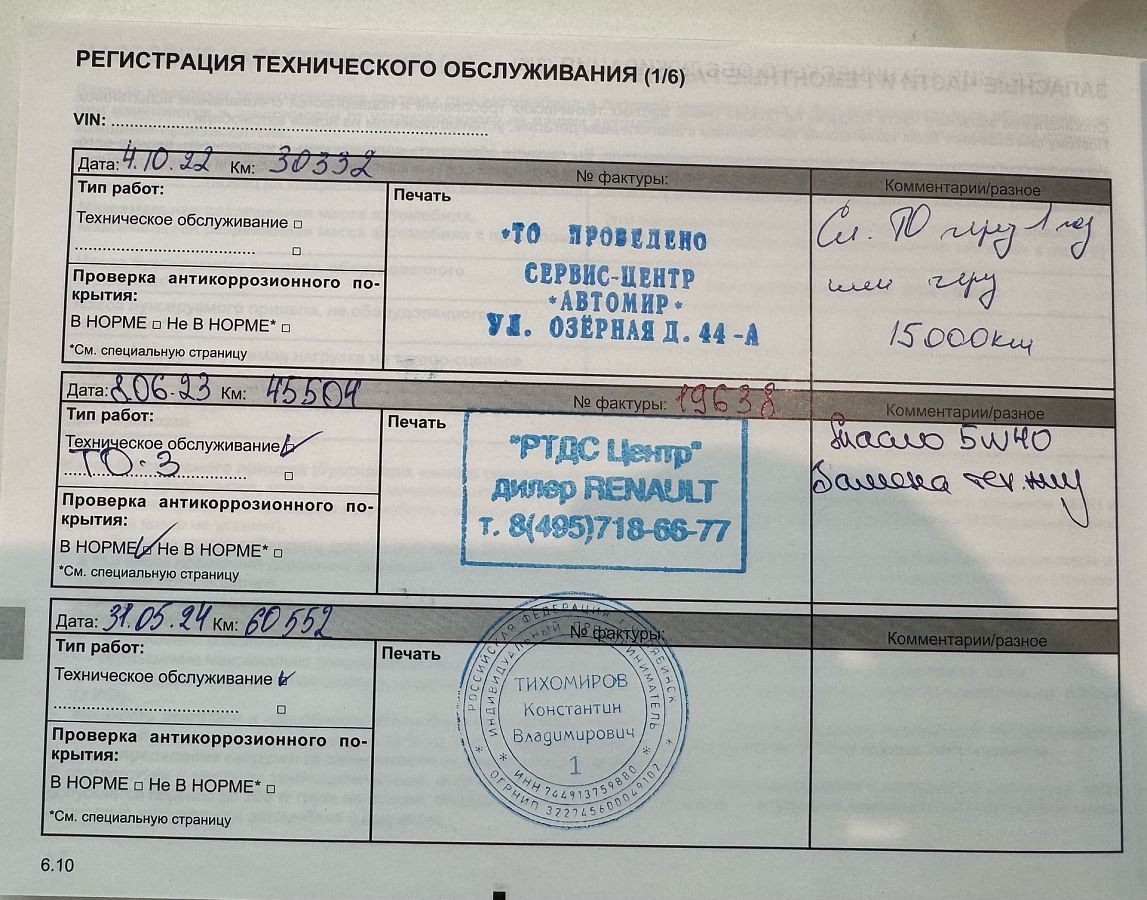 РЕГИСТРАЦИЯ ТЕХНИЧЕСКОГО ОБСЛУЖИВАНИЯ (1/6)
VIN:
Дата: 4.10.22 Км: 30332 № фактуры: Комментарии/разное
Тип работ:
Техническое обслуживание
Проверка антикоррозионного по-
крытия:
В НОРМЕ Не В НОРМЕ*
*См. специальную страницу
Печать
*ТО ПРОВЕДЕНО
СЕРВИС-ЦЕНТР
*АВТОМИР*
УЛ. ОЗЁРНАЯ Д. 44-А
Сл. ТО через 1 год
или через
15000км
Дата: 8.06.23 Км: 45504 № фактуры: 19638 Комментарии/разное
Тип работ:
Техническое обслуживание
ТО-3
Проверка антикоррозионного по-
крытия:
В НОРМЕ Не В НОРМЕ*
*См. специальную страницу
Печать
"РТДС Центр"
дилер RENAULT
т. 8(495)718-66-77
Масло 5W40
Замена тех.
Дата: 31.05.24 Км: 60552 № фактуры: Комментарии/разное
Тип работ:
Техническое обслуживание
Проверка антикоррозионного по-
крытия:
В НОРМЕ Не В НОРМЕ*
*См. специальную страницу
Печать
РОССИЙСКАЯ ФЕДЕРАЦИЯ Г. ЧЕЛЯБИНСК
ИНДИВИДУАЛЬНЫЙ ПРЕДПРИНИМАТЕЛЬ
ТИХОМИРОВ
Константин
Владимирович
1
* ИНН 744913759880 *
* ОГРНИП 322745600049102 *
6.10